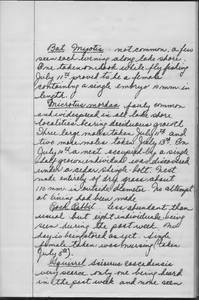 Bat Myotis not common, a few
seen each evening along lake shore.
One taken on hook while fly fishing
July 11th proved to be a female
containing a single embryo 19 mm in
length.
Microtus mordax fairly common
and widespread in all lake shore
localities having deciduous growth
Three large males taken July 11th and
two more males taken July 13th. On
July 11th a nest occupied by a single
half grown individual was discovered
under a cedar shingle bolt. Nest
made entirely of dry grass about
110 mm in outside diameter. No attempt
at lining had been made.
Rock Rabbit less abundant than
usual but eight individuals being
seen during the past week. No
hay is being stored as yet. Single
female taken was nursing (taken
July 8th).
Squirrel sciurus cascadensis
very scarce only one being heard
in the past week and none seen